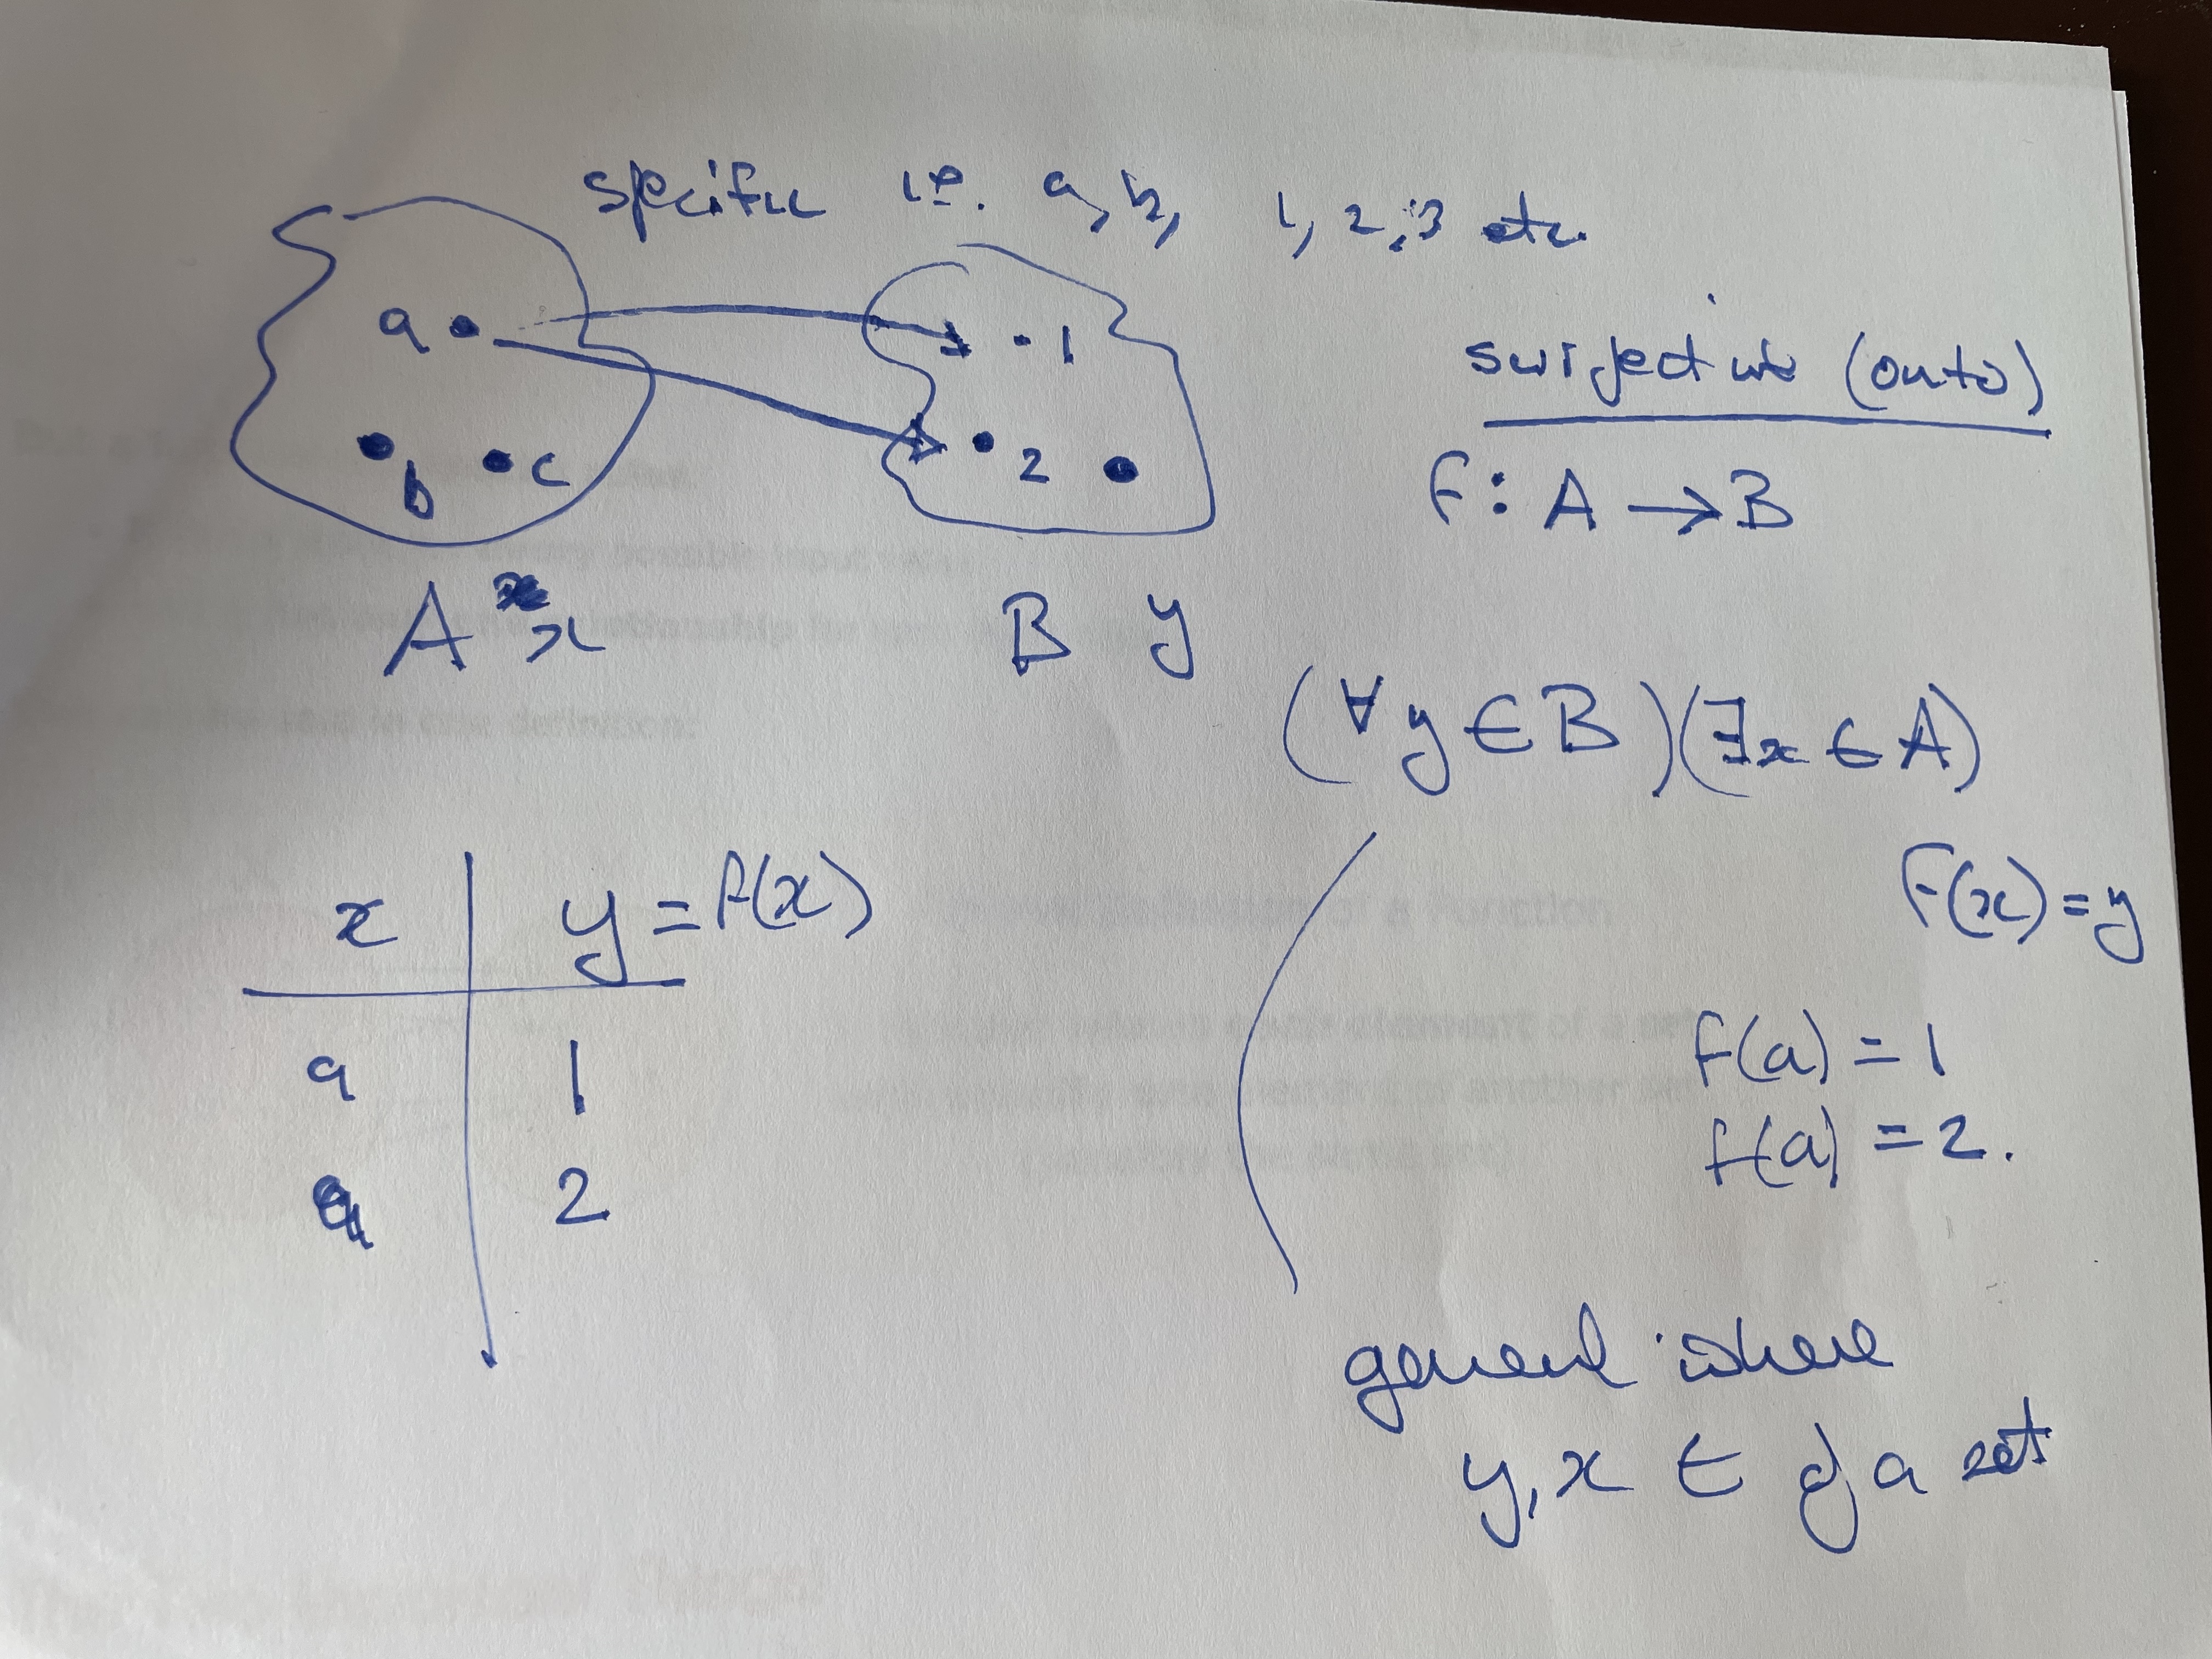 specific i.e. a, b, 1, 2, 3 etc.
a • • 1
• b • c • 2 •
A x B y
surjective (onto)
f: A → B
(∀y ∈ B)(∃x ∈ A)
f(x) = y
x | y = f(x)
a | 1
a | 2
f(a) = 1
f(a) = 2.
general where
y, x ∈ of a set